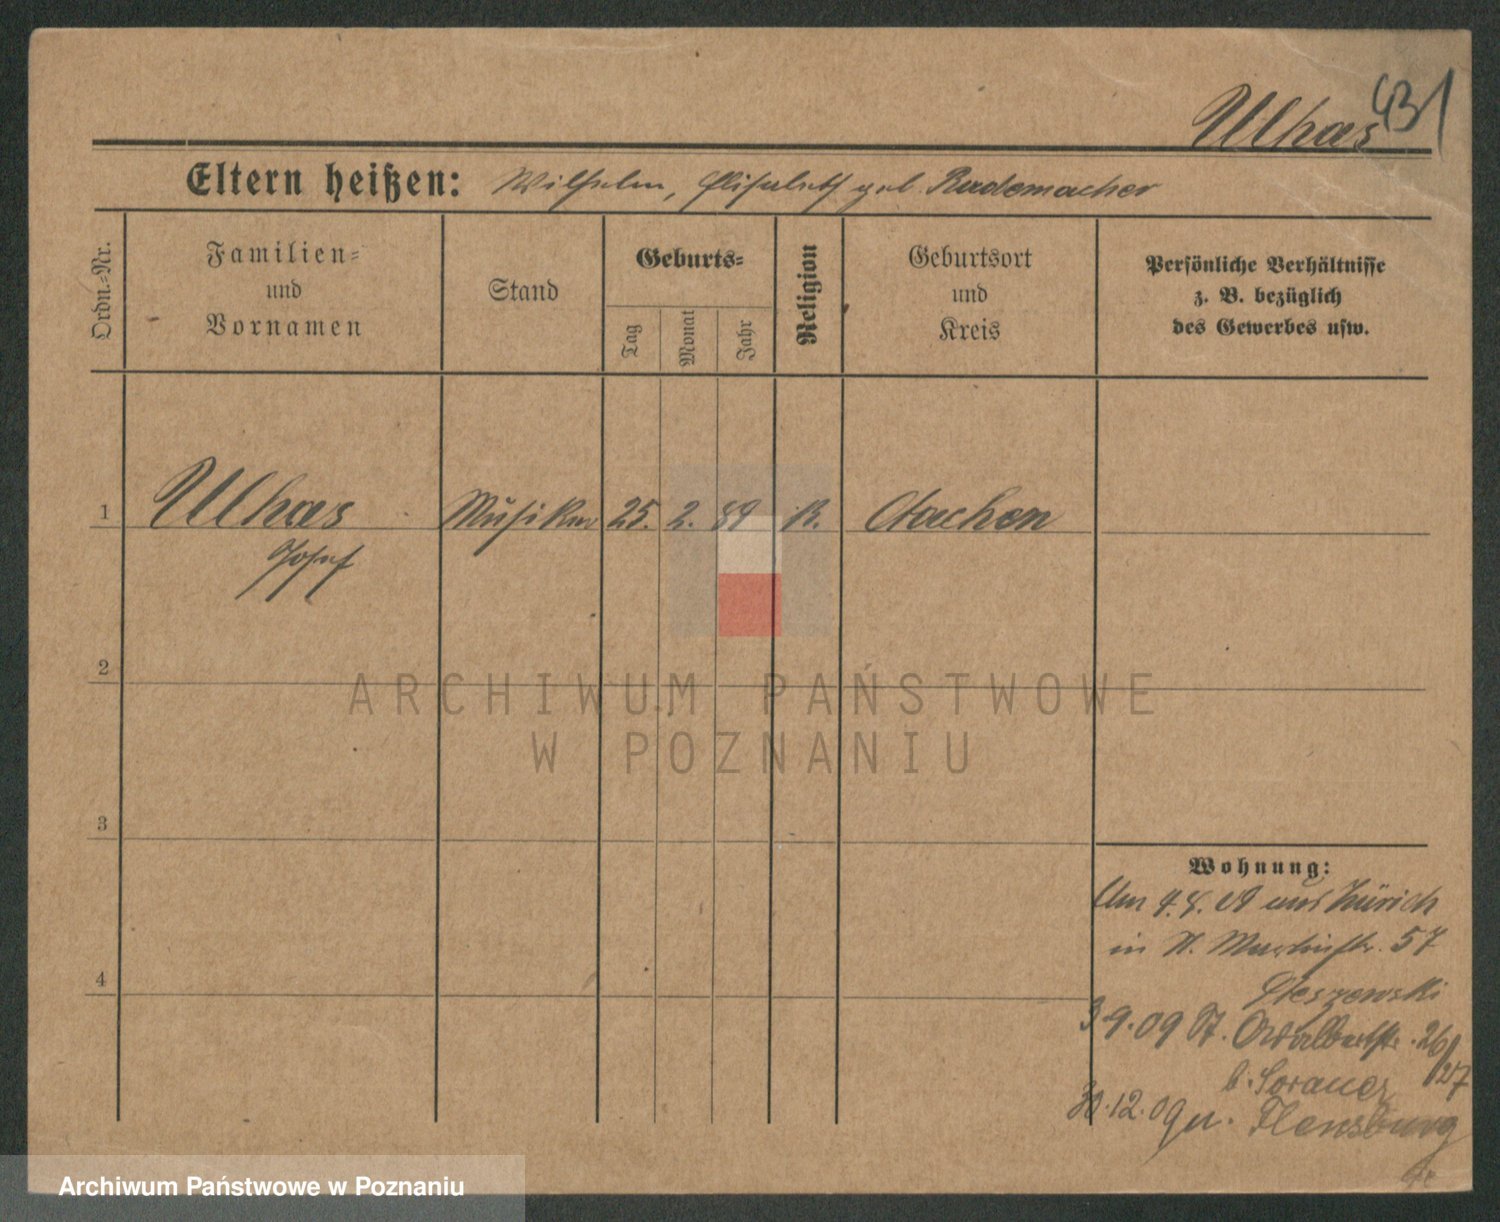 431
Ulhas
Eltern heißen: Wilhelm, Elisabeth geb. Rademacher
Ordn.=Nr.
Familien=
und
Vornamen
Stand
Geburts=
Tag
Monat
Jahr
Religion
Geburtsort
und
Kreis
Persönliche Verhältnisse
z. B. bezüglich
des Gewerbes usw.
1 Ulhas Musiker 25. 2. 89 K. Aachen
Josef
2
ARCHIWUM PAŃSTWOWE
W POZNANIU
3
4
Wohnung:
Am 4.8.09 aus Zürich
in St. Martinstr. 57
3.9.09 St. Adalbertstr. 26/27
b. Sorauer
30.12.09 n. Flensburg
Archiwum Państwowe w Poznaniu